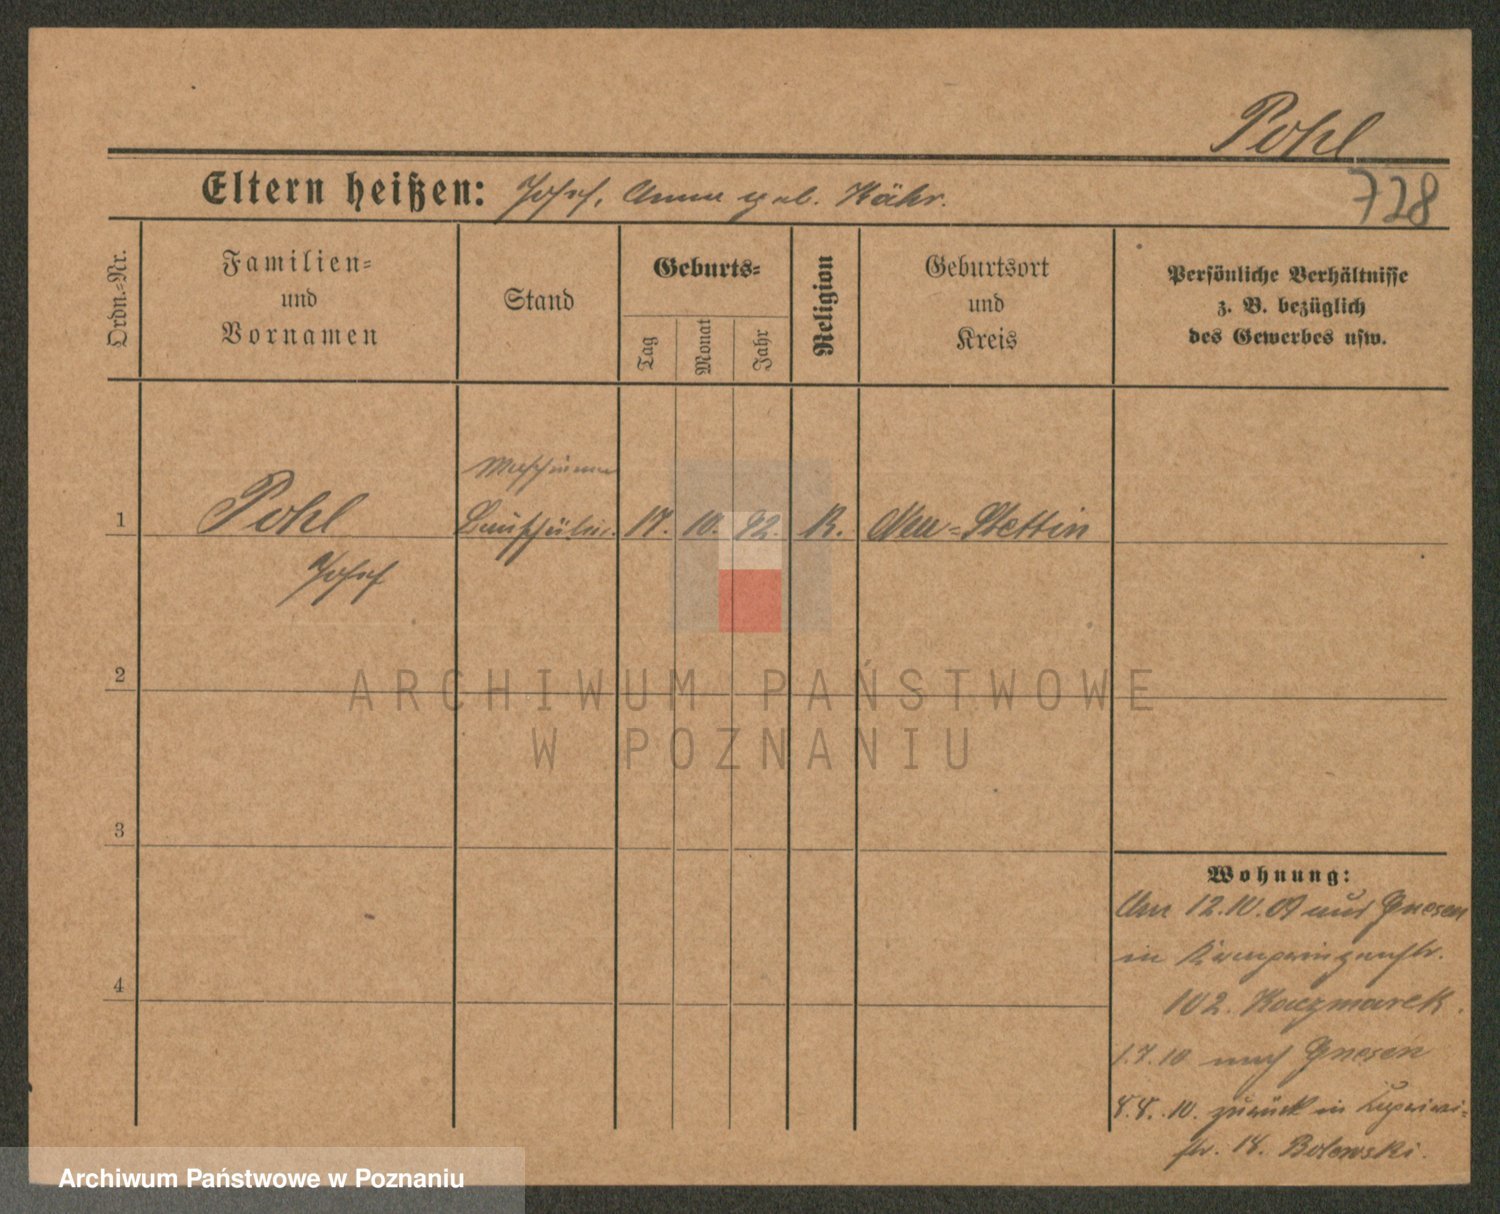 Pohl
Eltern heißen: Josef, Anna geb. Kähr.
728
Ordn.-Nr.
Familien-
und
Vornamen
Stand
Geburts-
Tag
Monat
Jahr
Religion
Geburtsort
und
Kreis
Persönliche Verhältnisse
z. B. bezüglich
des Gewerbes usw.
1
Pohl
Josef
17. 10. 92. K. Neu-Stettin
2
ARCHIWUM PAŃSTWOWE
W POZNANIU
3
4
Wohnung:
Am 12.10.07 aus Gnesen
in
102. Kaczmarek.
1.7.10 nach Gnesen
8.8.10. zurück in
str. 18. Bolewski.
Archiwum Państwowe w Poznaniu